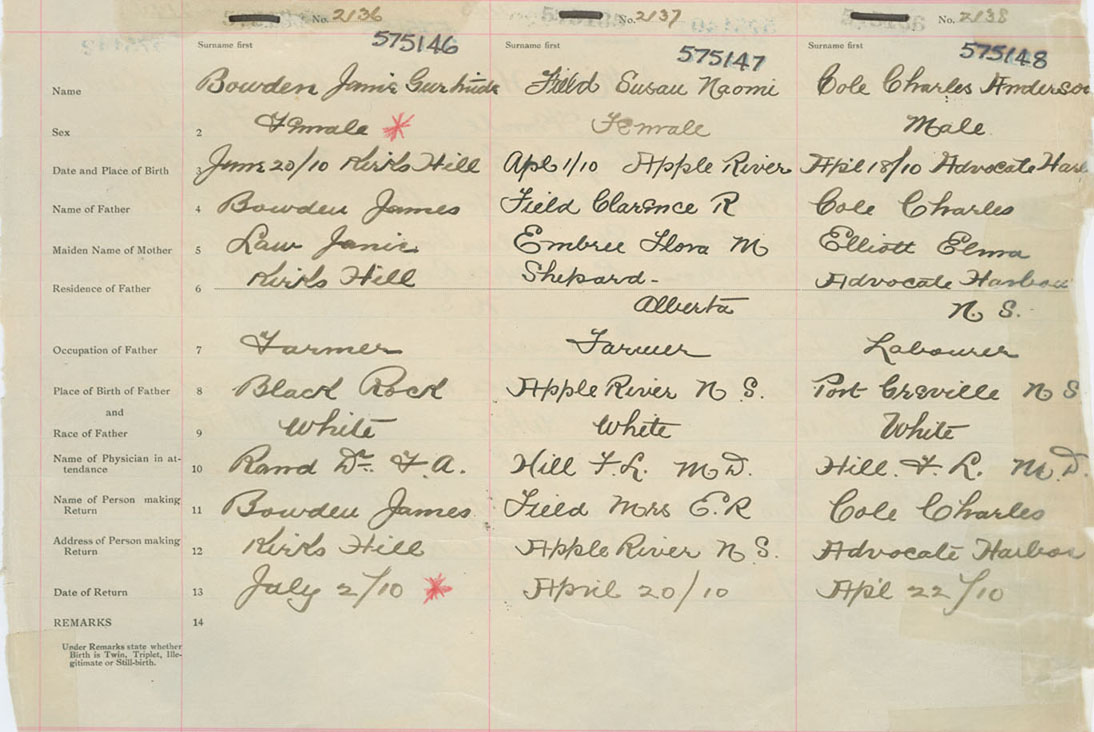 No. 2136 No. 2137 No. 2138
575146 575147 575148
Surname first Surname first Surname first
Name Bowden Janie Gurtrude Field Susan Naomi Cole Charles Anderson
Sex 2 Female * Female Male
Date and Place of Birth 3 June 20/10 Kirks Hill Apl 1/10 Apple River Apil 18/10 Advocate Harb
Name of Father 4 Bowden James Field Clarence R Cole Charles
Maiden Name of Mother 5 Law Janie Embree Flora M Elliott Elma
Residence of Father 6 Kirks Hill Shepard - Advocate Harbour
Alberta N. S.
Occupation of Father 7 Farmer Farmer Labourer
Place of Birth of Father 8 Black Rock Apple River N S. Port Greville N S
and
Race of Father 9 White White White
Name of Physician in at-
tendance 10 Rand Dr. F. A. Hill F. L. M D. Hill. F. L. M. D.
Name of Person making
Return 11 Bowden James Field Mrs E. R Cole Charles
Address of Person making
Return 12 Kirks Hill Apple River N S. Advocate Harbor
Date of Return 13 July 2/10 * April 20/10 Apl 22/10
REMARKS 14
Under Remarks state whether
Birth is Twin, Triplet, Ille-
gitimate or Still-birth.